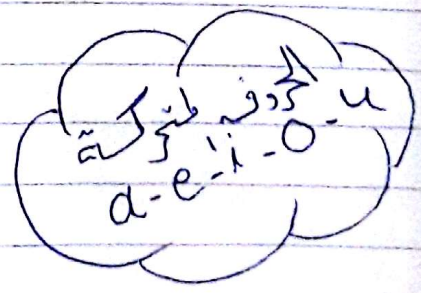 الحروف المتحركة
a-e-i-o-u